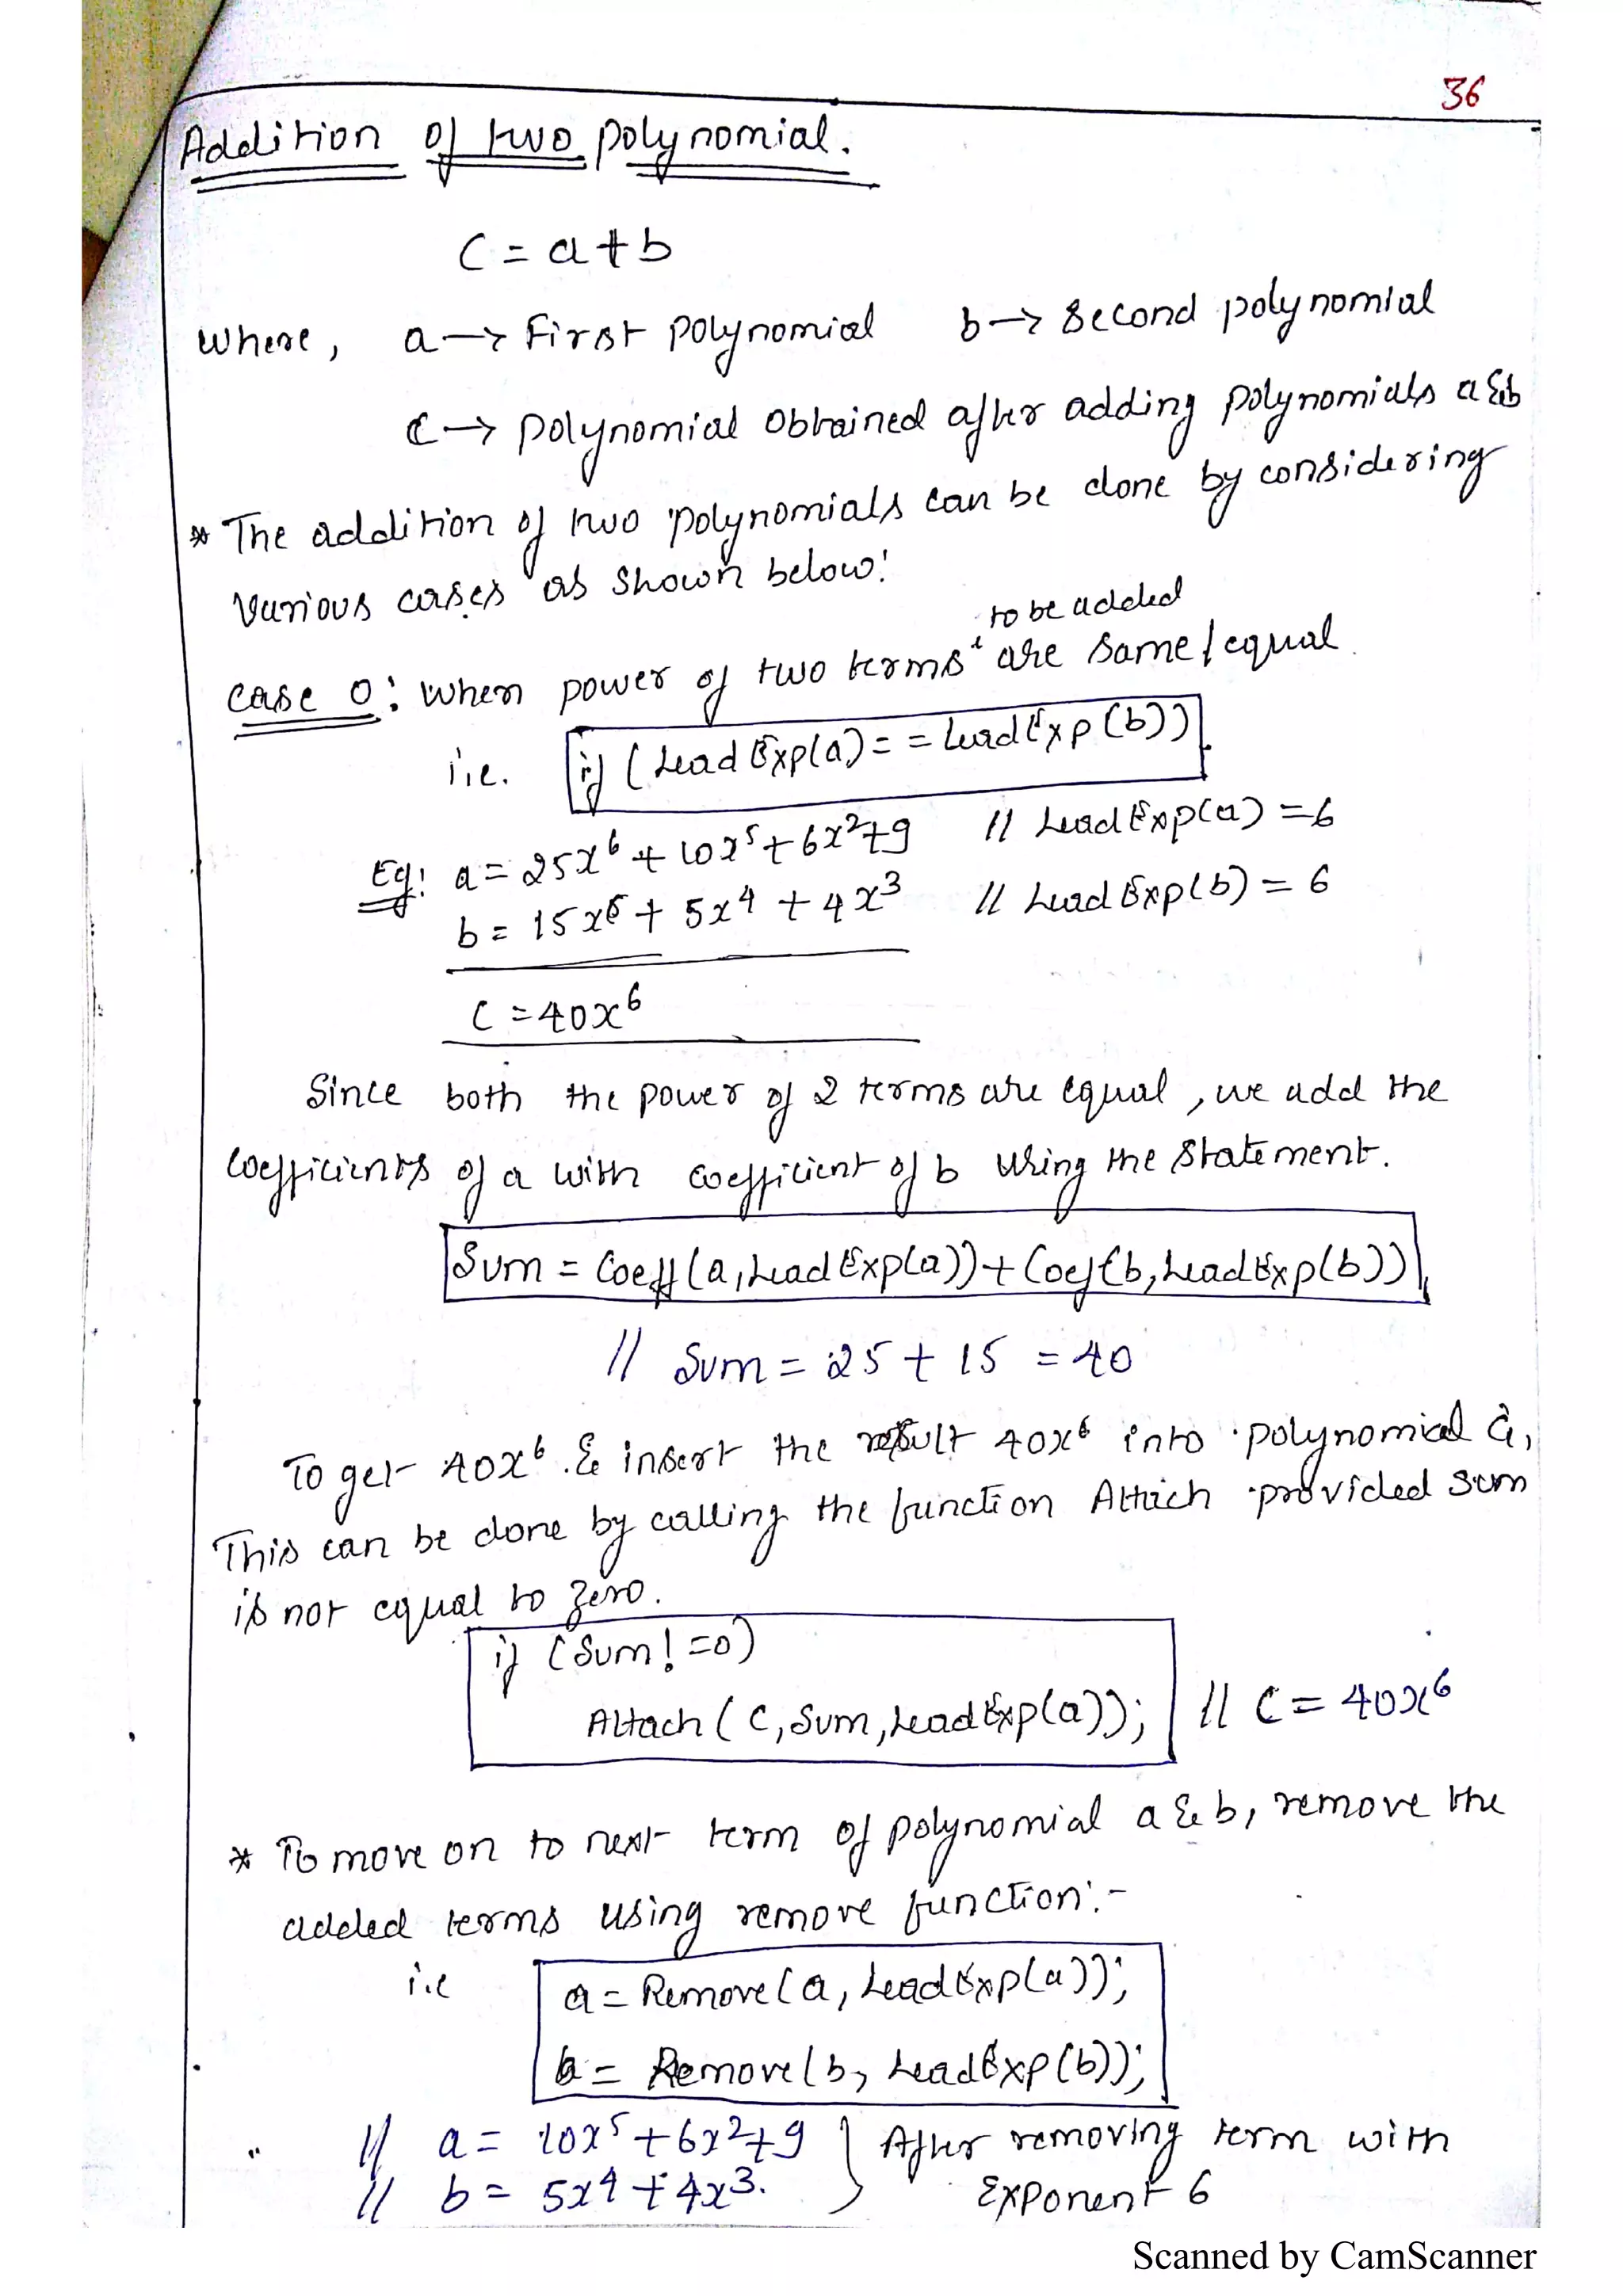 36
Addition of two polynomial.
C = a + b
where, a → First polynomial b → Second polynomial
C → polynomial obtained after adding polynomials a & b
* The addition of two polynomials can be done by considering
various cases as shown below:
to be added
case 0: when power of two terms are same/equal.
i.e. if (LeadExp(a) == LeadExp(b))
Eg: a = 25x⁶ + 10x⁵ + 6x² + 9 // LeadExp(a) = 6
b = 15x⁶ + 5x⁴ + 4x³ // LeadExp(b) = 6
C = 40x⁶
Since both the power of 2 terms are equal, we add the
coefficients of a with coefficient of b using the statement.
Sum = Coeff(a, LeadExp(a)) + Coef(b, LeadExp(b))
// Sum = 25 + 15 = 40
To get 40x⁶ & insert the result 40x⁶ into polynomial C,
This can be done by calling the function Attach provided sum
is not equal to zero.
if (Sum != 0)
Attach(C, Sum, LeadExp(a)); // C = 40x⁶
* To move on to next term of polynomial a & b, remove the
added terms using remove function:-
i.e a = Remove(a, LeadExp(a));
b = Remove(b, LeadExp(b));
// a = 10x⁵ + 6x² + 9 } After removing term with
// b = 5x⁴ + 4x³. Exponent 6
Scanned by CamScanner